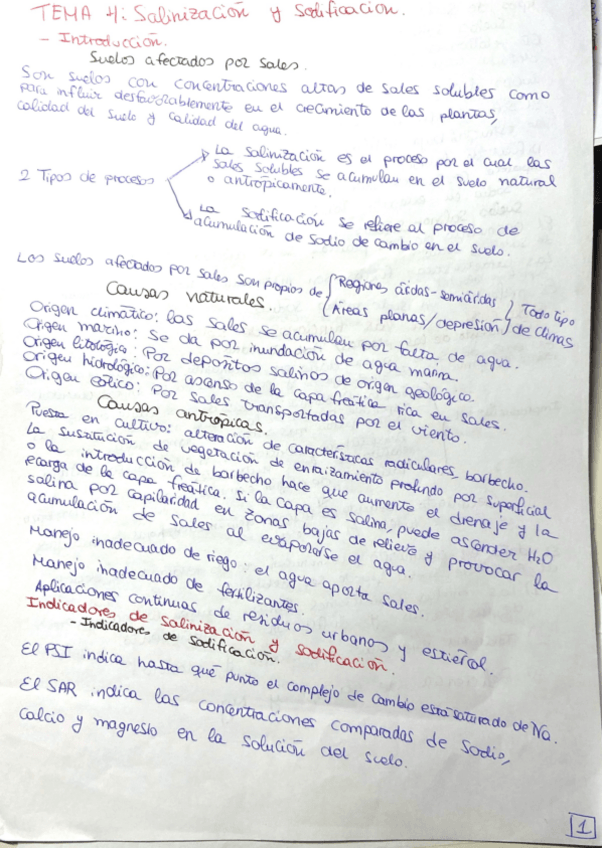 TEMA 4: Salinización y Sodificación.
- Introducción.
Suelos afectados por sales.
Son suelos con concentraciones altas de sales solubles como
para influir desfavorablemente en el crecimiento de las plantas,
calidad del suelo y calidad del agua.
2 Tipos de procesos
La salinización es el proceso por el cual las
sales solubles se acumulan en el suelo natural
o antrópicamente.
La sodificación se refiere al proceso de
acumulación de sodio de cambio en el suelo.
Los suelos afectados por sales son propios de
Regiones áridas-semiáridas
Áreas planas/depresión
Todo tipo
de climas
Causas naturales.
Origen climático: las sales se acumulan por falta de agua.
Origen marino: Se da por inundación de agua marina.
Origen litológico: Por depósitos salinos de origen geológico.
Origen hidrológico: Por ascenso de la capa freática rica en sales.
Origen eólico: Por sales transportadas por el viento.
Causas antrópicas.
Puesta en cultivo: alteración de características radiculares, barbecho.
La sustitución de vegetación de enraizamiento profundo por superficial
o la introducción de barbecho hace que aumente el drenaje y la
recarga de la capa freática. Si la capa es salina, puede ascender H2O
salina por capilaridad en zonas bajas de relieve y provocar la
acumulación de sales al evaporarse el agua.
Manejo inadecuado de riego: el agua aporta sales.
Manejo inadecuado de fertilizantes.
Aplicaciones continuas de residuos urbanos y estiércol.
Indicadores de salinización y sodificación.
- Indicadores de sodificación.
El PSI indica hasta qué punto el complejo de cambio está saturado de Na.
El SAR indica las concentraciones comparadas de sodio,
calcio y magnesio en la solución del suelo.
1